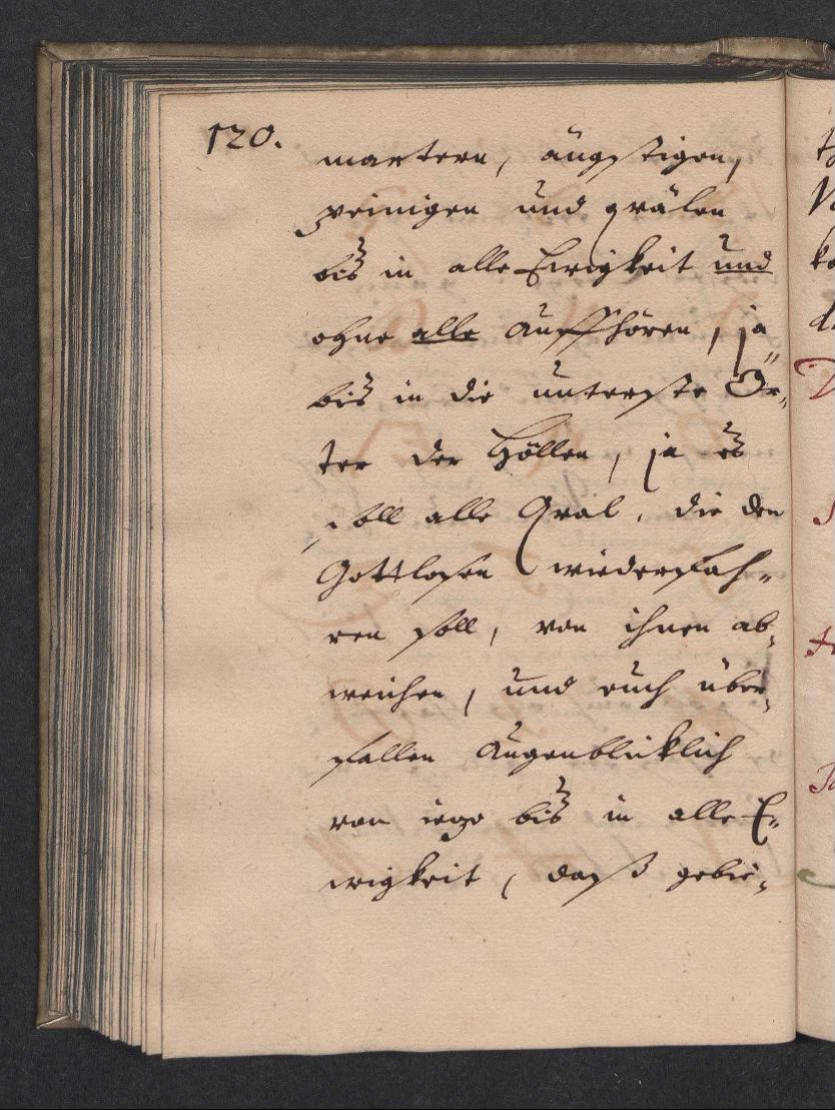 120.
martern, ängstigen,
peinigen und qvälen
biß in alle Ewigkeit und
ohne alle auffhören, ja
biß in die unterste Ör„
ter der Höllen, ja eß
soll alle Qval, die den
Gottlosen wiederfah„
ren soll, von ihnen ab„
weichen, und euch über„
fallen augenblicklich
von iezo biß in alle E„
wigkeit, daß gebie„